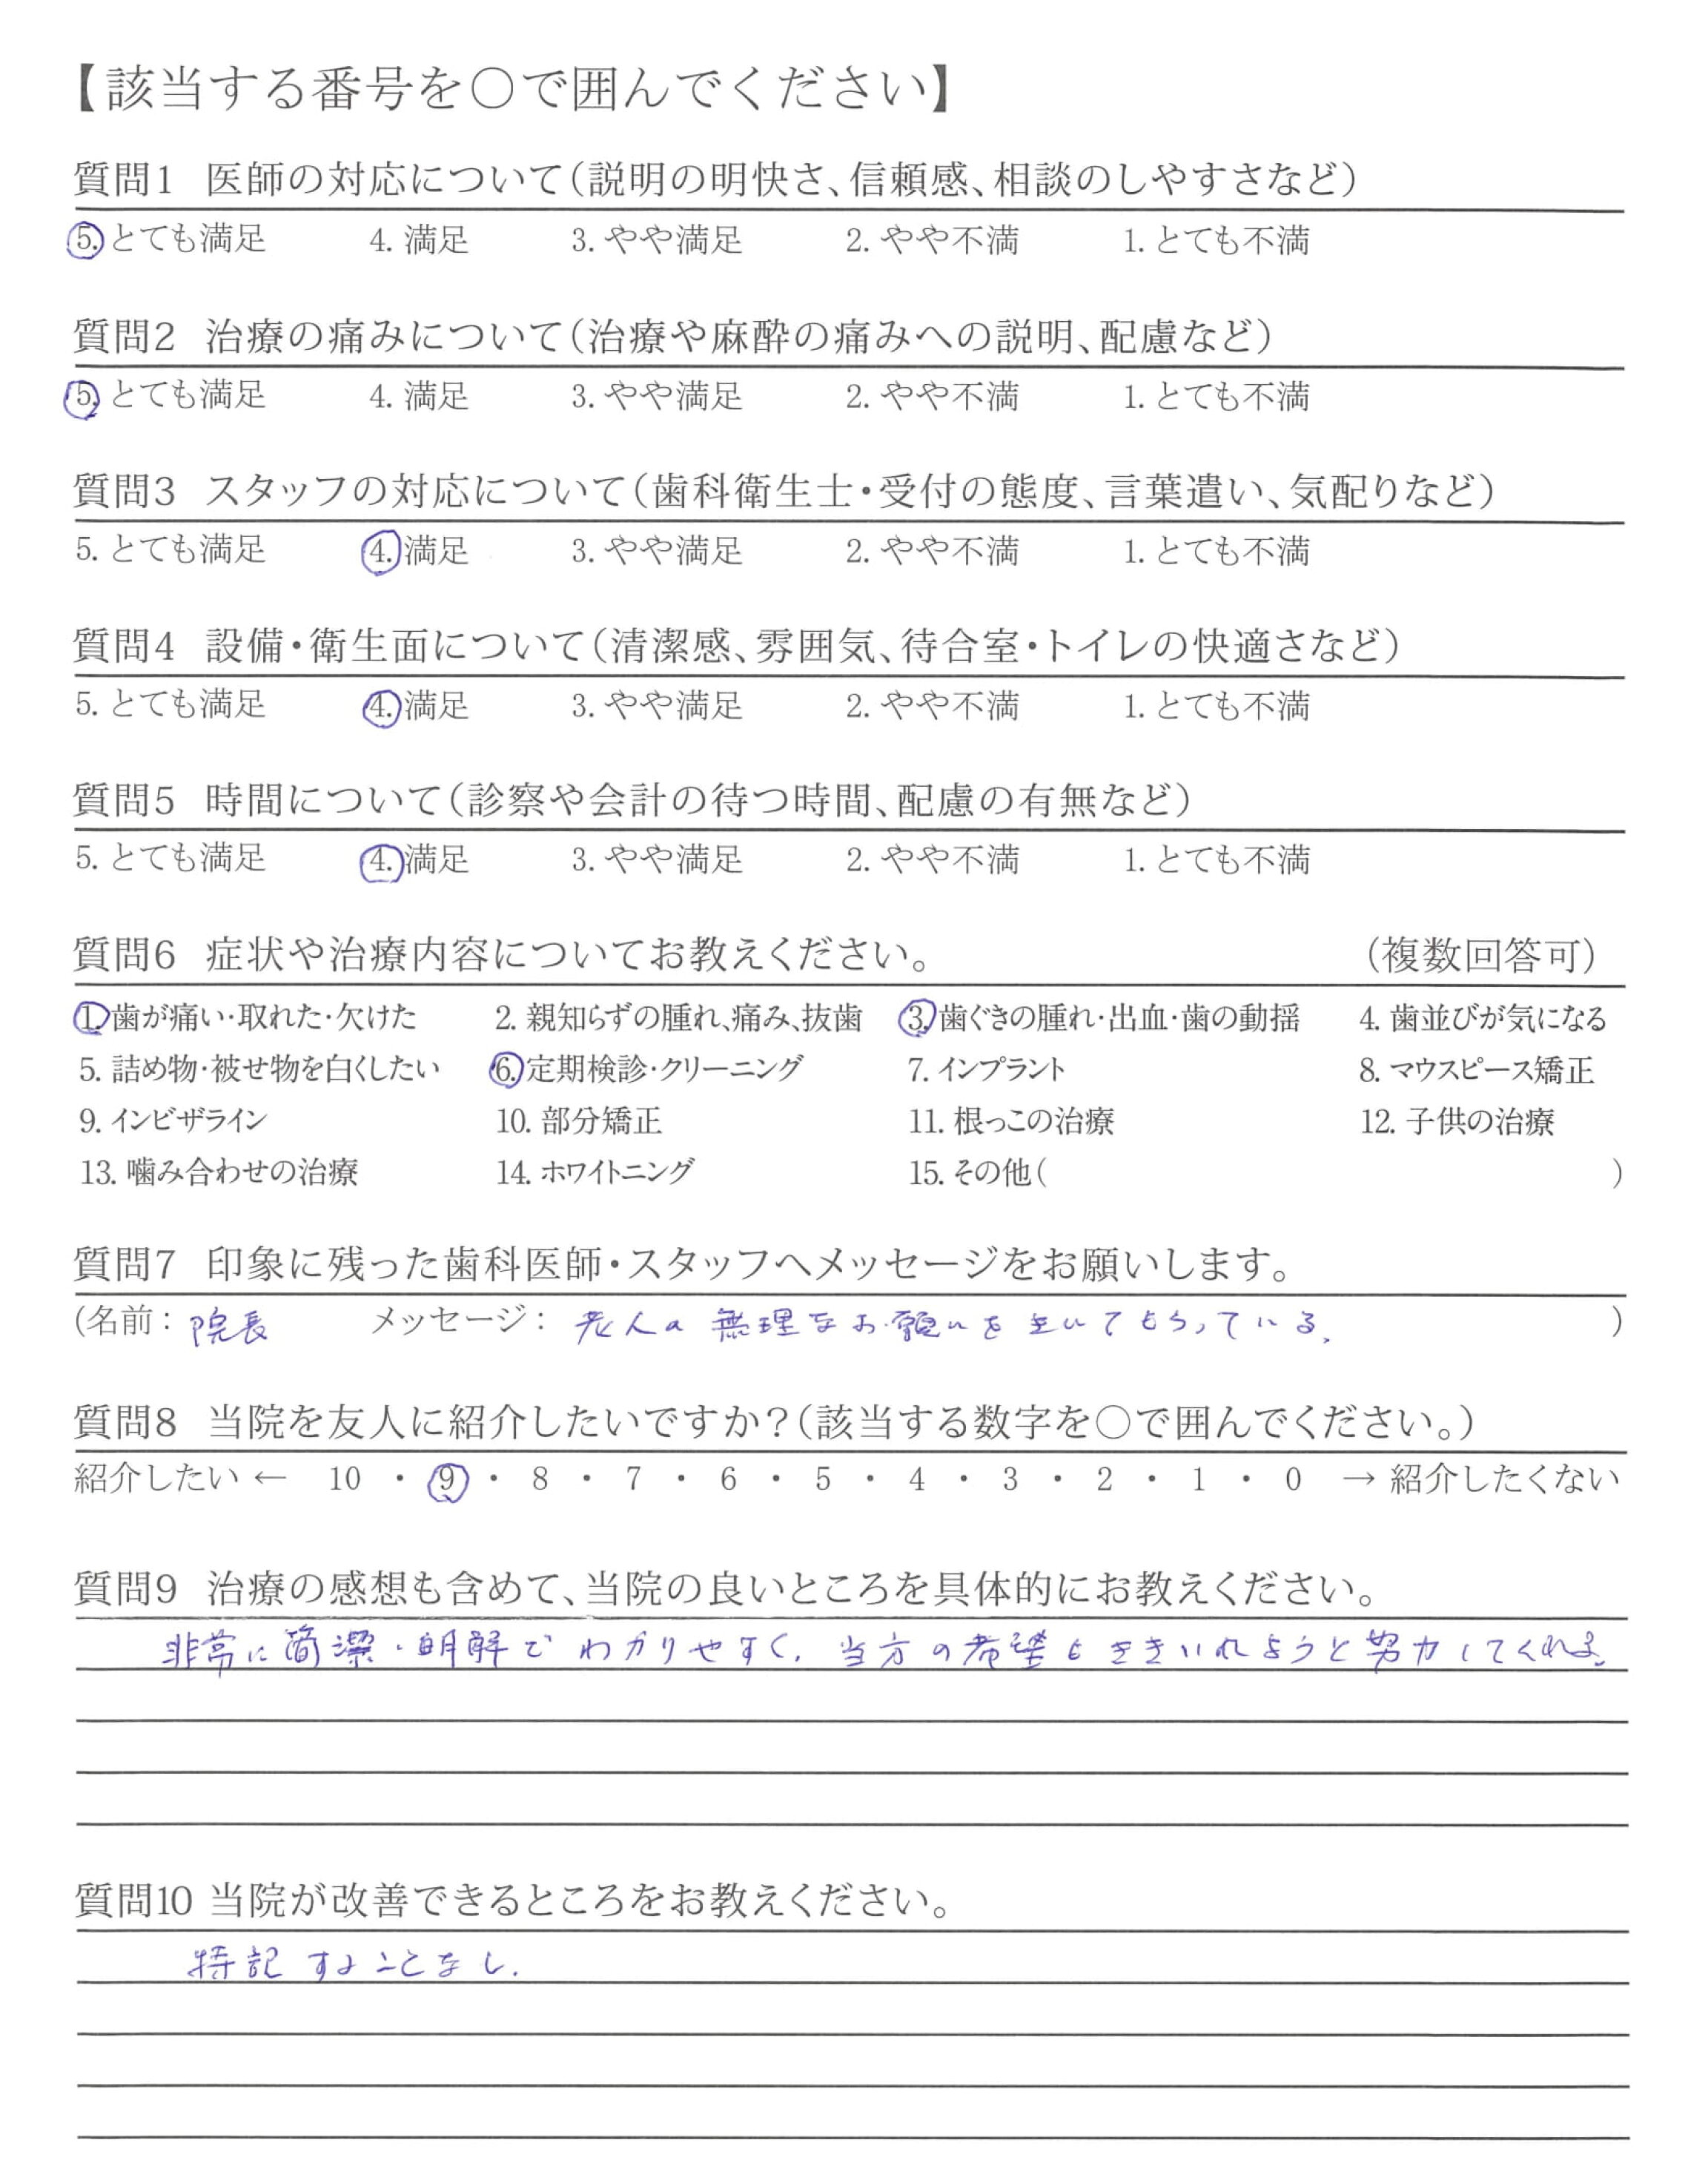 【該当する番号を○で囲んでください】
質問1 医師の対応について(説明の明快さ、信頼感、相談のしやすさなど)
5. とても満足 4. 満足 3. やや満足 2. やや不満 1. とても不満
質問2 治療の痛みについて(治療や麻酔の痛みへの説明、配慮など)
5. とても満足 4. 満足 3. やや満足 2. やや不満 1. とても不満
質問3 スタッフの対応について(歯科衛生士・受付の態度、言葉遣い、気配りなど)
5. とても満足 4. 満足 3. やや満足 2. やや不満 1. とても不満
質問4 設備・衛生面について(清潔感、雰囲気、待合室・トイレの快適さなど)
5. とても満足 4. 満足 3. やや満足 2. やや不満 1. とても不満
質問5 時間について(診察や会計の待つ時間、配慮の有無など)
5. とても満足 4. 満足 3. やや満足 2. やや不満 1. とても不満
質問6 症状や治療内容についてお教えください。 (複数回答可)
1. 歯が痛い・取れた・欠けた 2. 親知らずの腫れ、痛み、抜歯 3. 歯ぐきの腫れ・出血・歯の動揺 4. 歯並びが気になる
5. 詰め物・被せ物を白くしたい 6. 定期検診・クリーニング 7. インプラント 8. マウスピース矯正
9. インビザライン 10. 部分矯正 11. 根っこの治療 12. 子供の治療
13. 噛み合わせの治療 14. ホワイトニング 15. その他( )
質問7 印象に残った歯科医師・スタッフへメッセージをお願いします。
(名前: 院長 メッセージ: 老人の無理なお願いをきいてもらっている。 )
質問8 当院を友人に紹介したいですか?(該当する数字を○で囲んでください。)
紹介したい ← 10 ・ 9 ・ 8 ・ 7 ・ 6 ・ 5 ・ 4 ・ 3 ・ 2 ・ 1 ・ 0 → 紹介したくない
質問9 治療の感想も含めて、当院の良いところを具体的にお教えください。
非常に簡潔・明解でわかりやすく、当方の希望もききいれようと努力してくれる。
質問10 当院が改善できるところをお教えください。
特記すことなし.